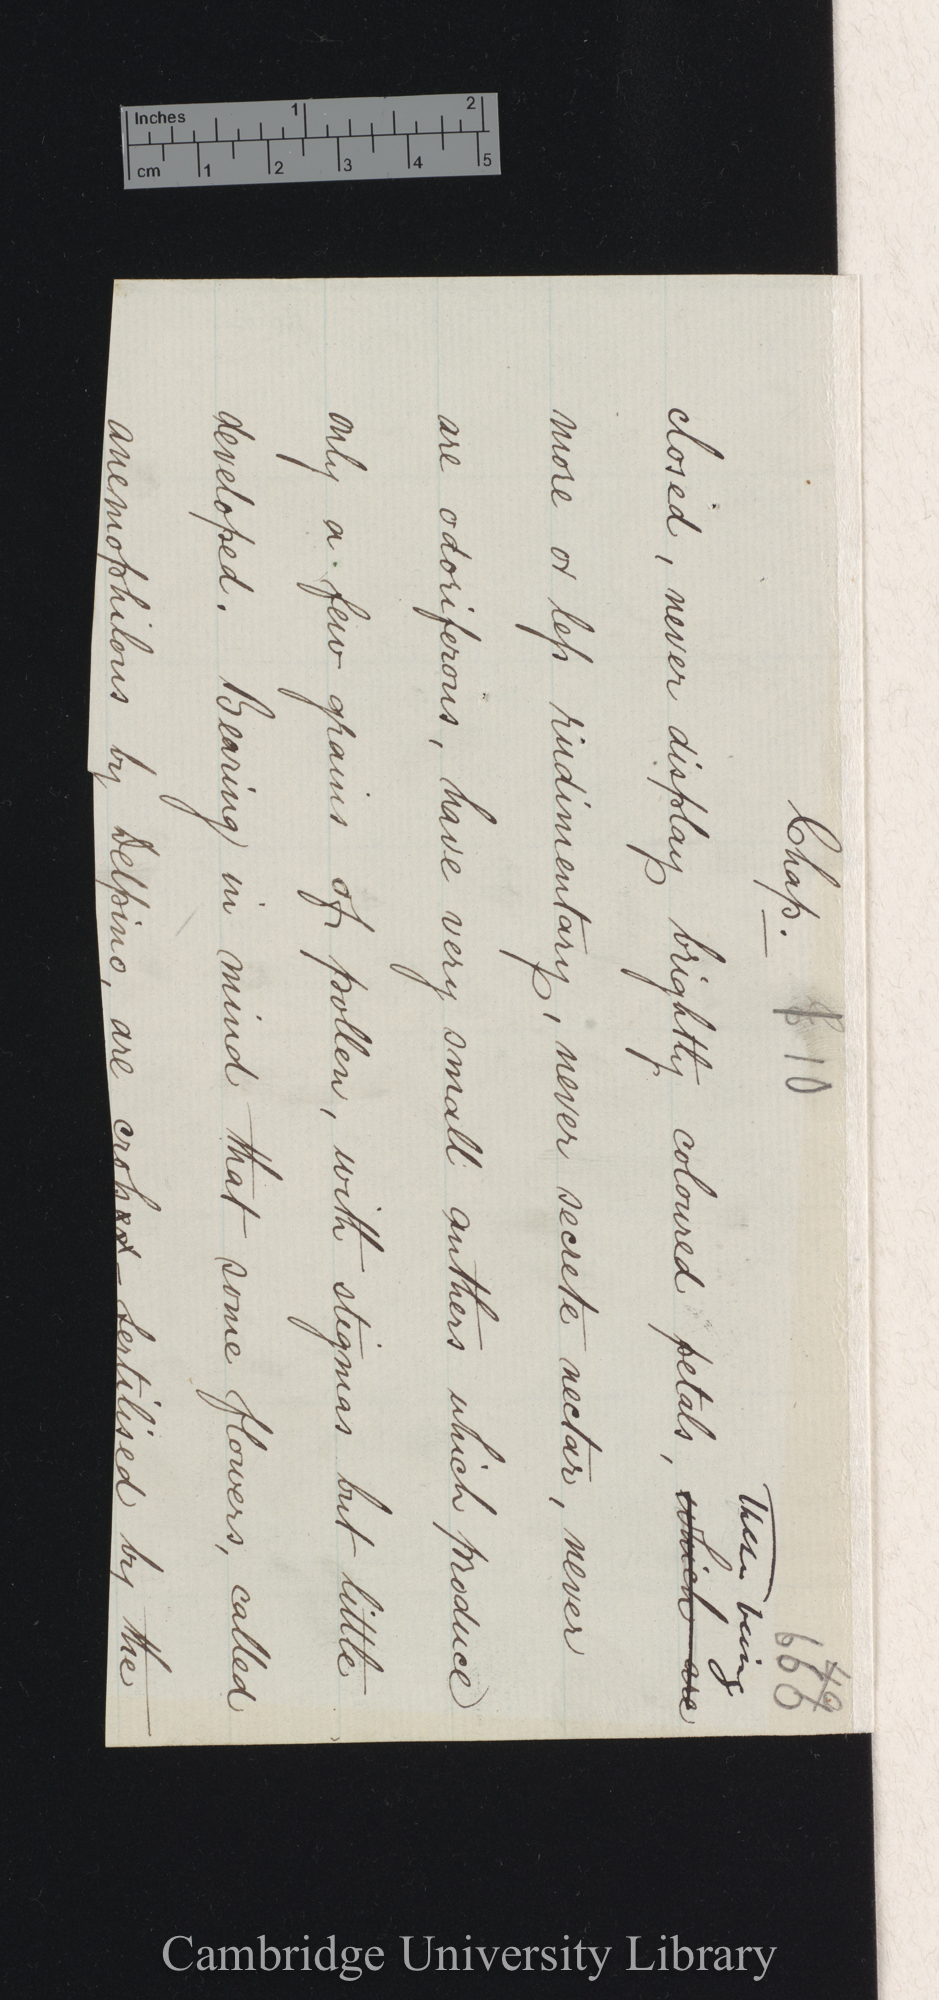 Inches 1 2
cm 1 2 3 4 5
Chap. 10
49
666
these being
closed, never display brightly coloured petals, which are
more or less rudimentary, never secrete nectar, never
are odoriferous, have very small anthers which produce
only a few grains of pollen, with stigmas but little
developed. Bearing in mind that some flowers, called
anemophilous by Delpino, are cross-fertilised by the
Cambridge University Library